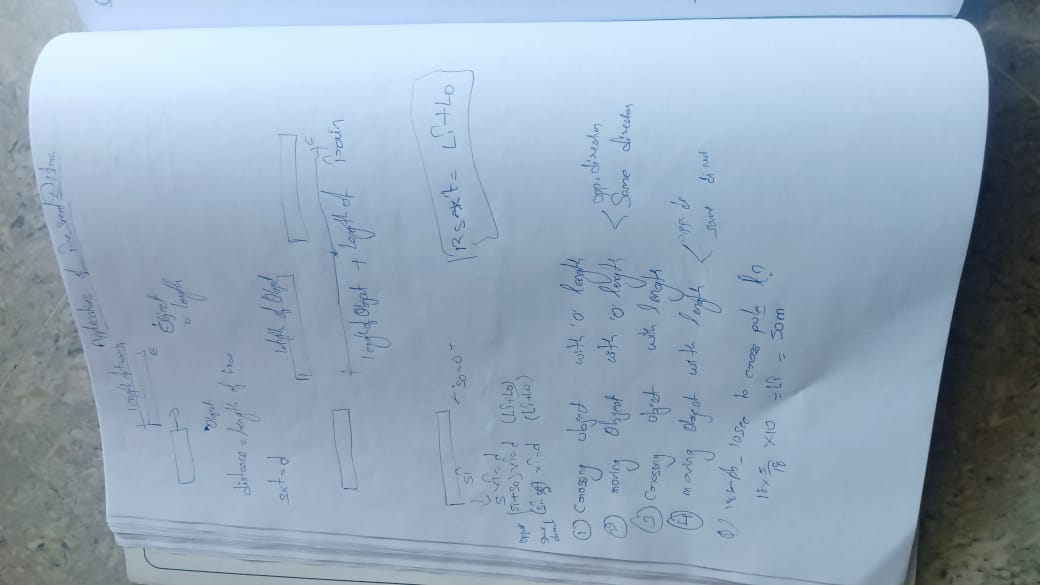 Application of Time, Speed, Distance
length of train
Object
= length
Object
distance = length of train
s×t=d
length of Object
length of Object + length of train
Rs×t = Li+Lo
Si
So=0
S×t=d
oppo (Si+So)×t=d (Li+Lo)
same direct (Si-So)×t=d (Li+Lo)
① Crossing object with '0' length
② moving Object with '0' length < opp. direction
Same direction
③ Crossing object with length
④ moving Object with length < opp. di
same direct
Q) 18 kmph - 10 sec to cross pole l?
18×5/18 ×10 = Li = 50m